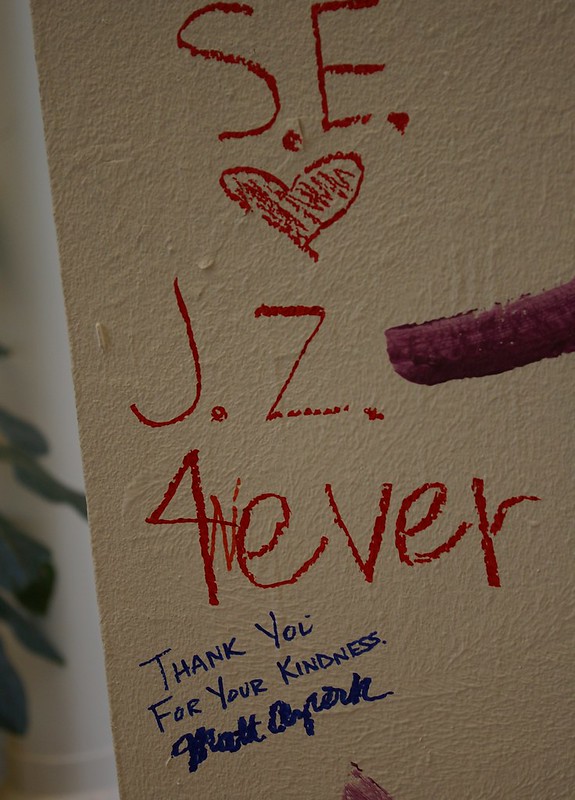 S.E.
J.Z.
4ever
THANK YOU
FOR YOUR KINDNESS.
Matt